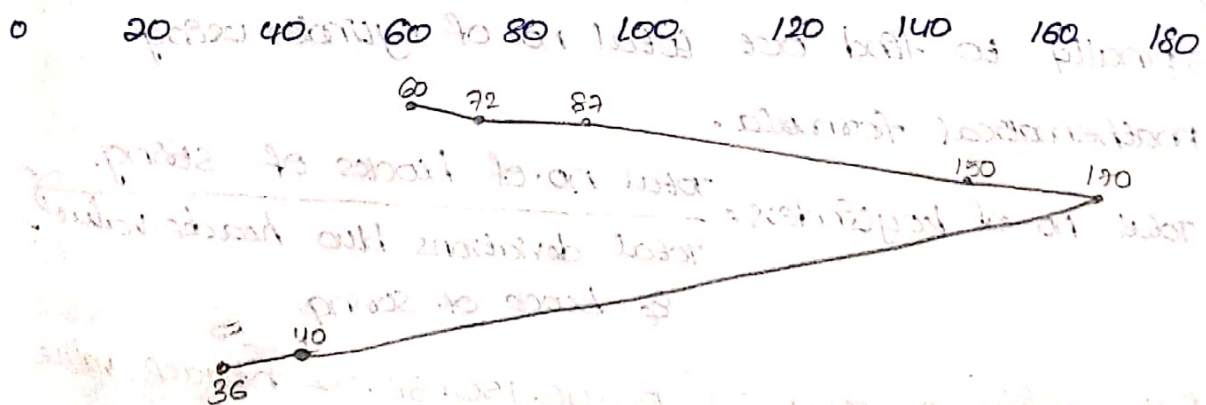 0 20 40 60 80 100 120 140 160 180
60 72 87 150 190
40
36